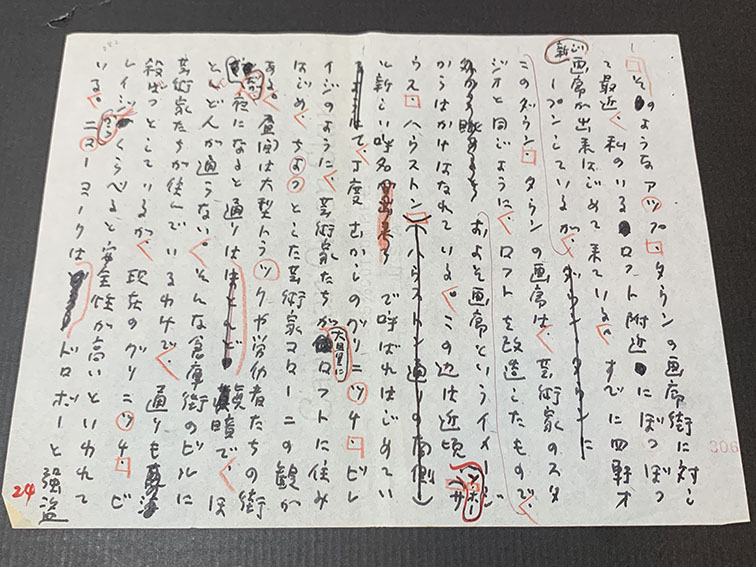 そのようなアップ・タウンの画廊街に対し
て最近、私のいるロフト附近にぼつぼつ
新しい画廊が出来はじめて来ている。すでに四軒オ
ープンしているが、ダウン・タウンに
このダウン・タウンの画廊は、芸術家のスタ
ジオと同じように、ロフトを改造したもので、
およそ画廊というイメージ
からはかけはなれている。この辺は近頃ソーホー(サ
ウス・ハウストン)(ハウストン通りの南側)
と新しい呼名が出来で呼ばれはじめてい
て丁度むかしのグリニッチ・ビレ
イジのように、芸術家たちが大量にロフトに住み
はじめ、ちょっとした芸術家コローニの観が
ある。昼間は大型トラックや労仂者たちの街
だが夜になると通りはほとんど真暗で、ほ
とんど人が通らない。そんな倉庫街のビルに
芸術家たちが住んでいるわけで、通りも
殺ばつとしているが、現在のグリニッチ・ビ
レイジからくらべると安全性が高いといわれて
いる。ニューヨークはドロボーと強盗
24
306